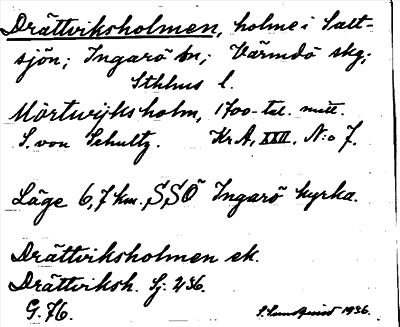 Drättviksholmen, holme i Salt-
sjön; Ingarö sn; Värmdö skg;
Sthlms l.
Mörtwijksholm, 1700-tal. mitt.
S. von Schultz. Kr.A. XXII. N:o 7.
Läge 6,7 km. SSÖ Ingarö kyrka.
Drättviksholmen ek.
Drättviksh. Sj. 236.
G. 76. 1936.